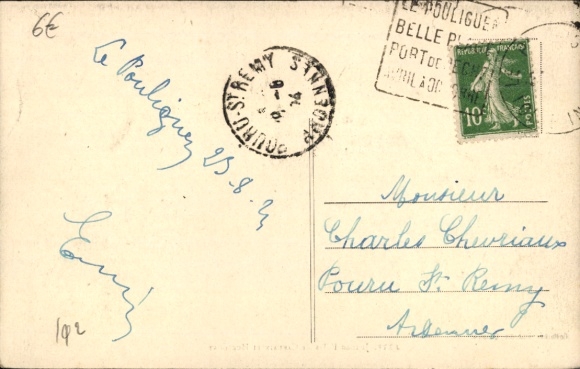 6€
LE POULIGUEN
BELLE PL
PORT DE
POURU-ST REMY
ARDENNES
REPUBLIQUE FRANÇAISE
10
POSTES
Le Pouliguen
25-8-2
Monsieur
Charles Chevriaux
Pouru St. Remy
Ardennes
192